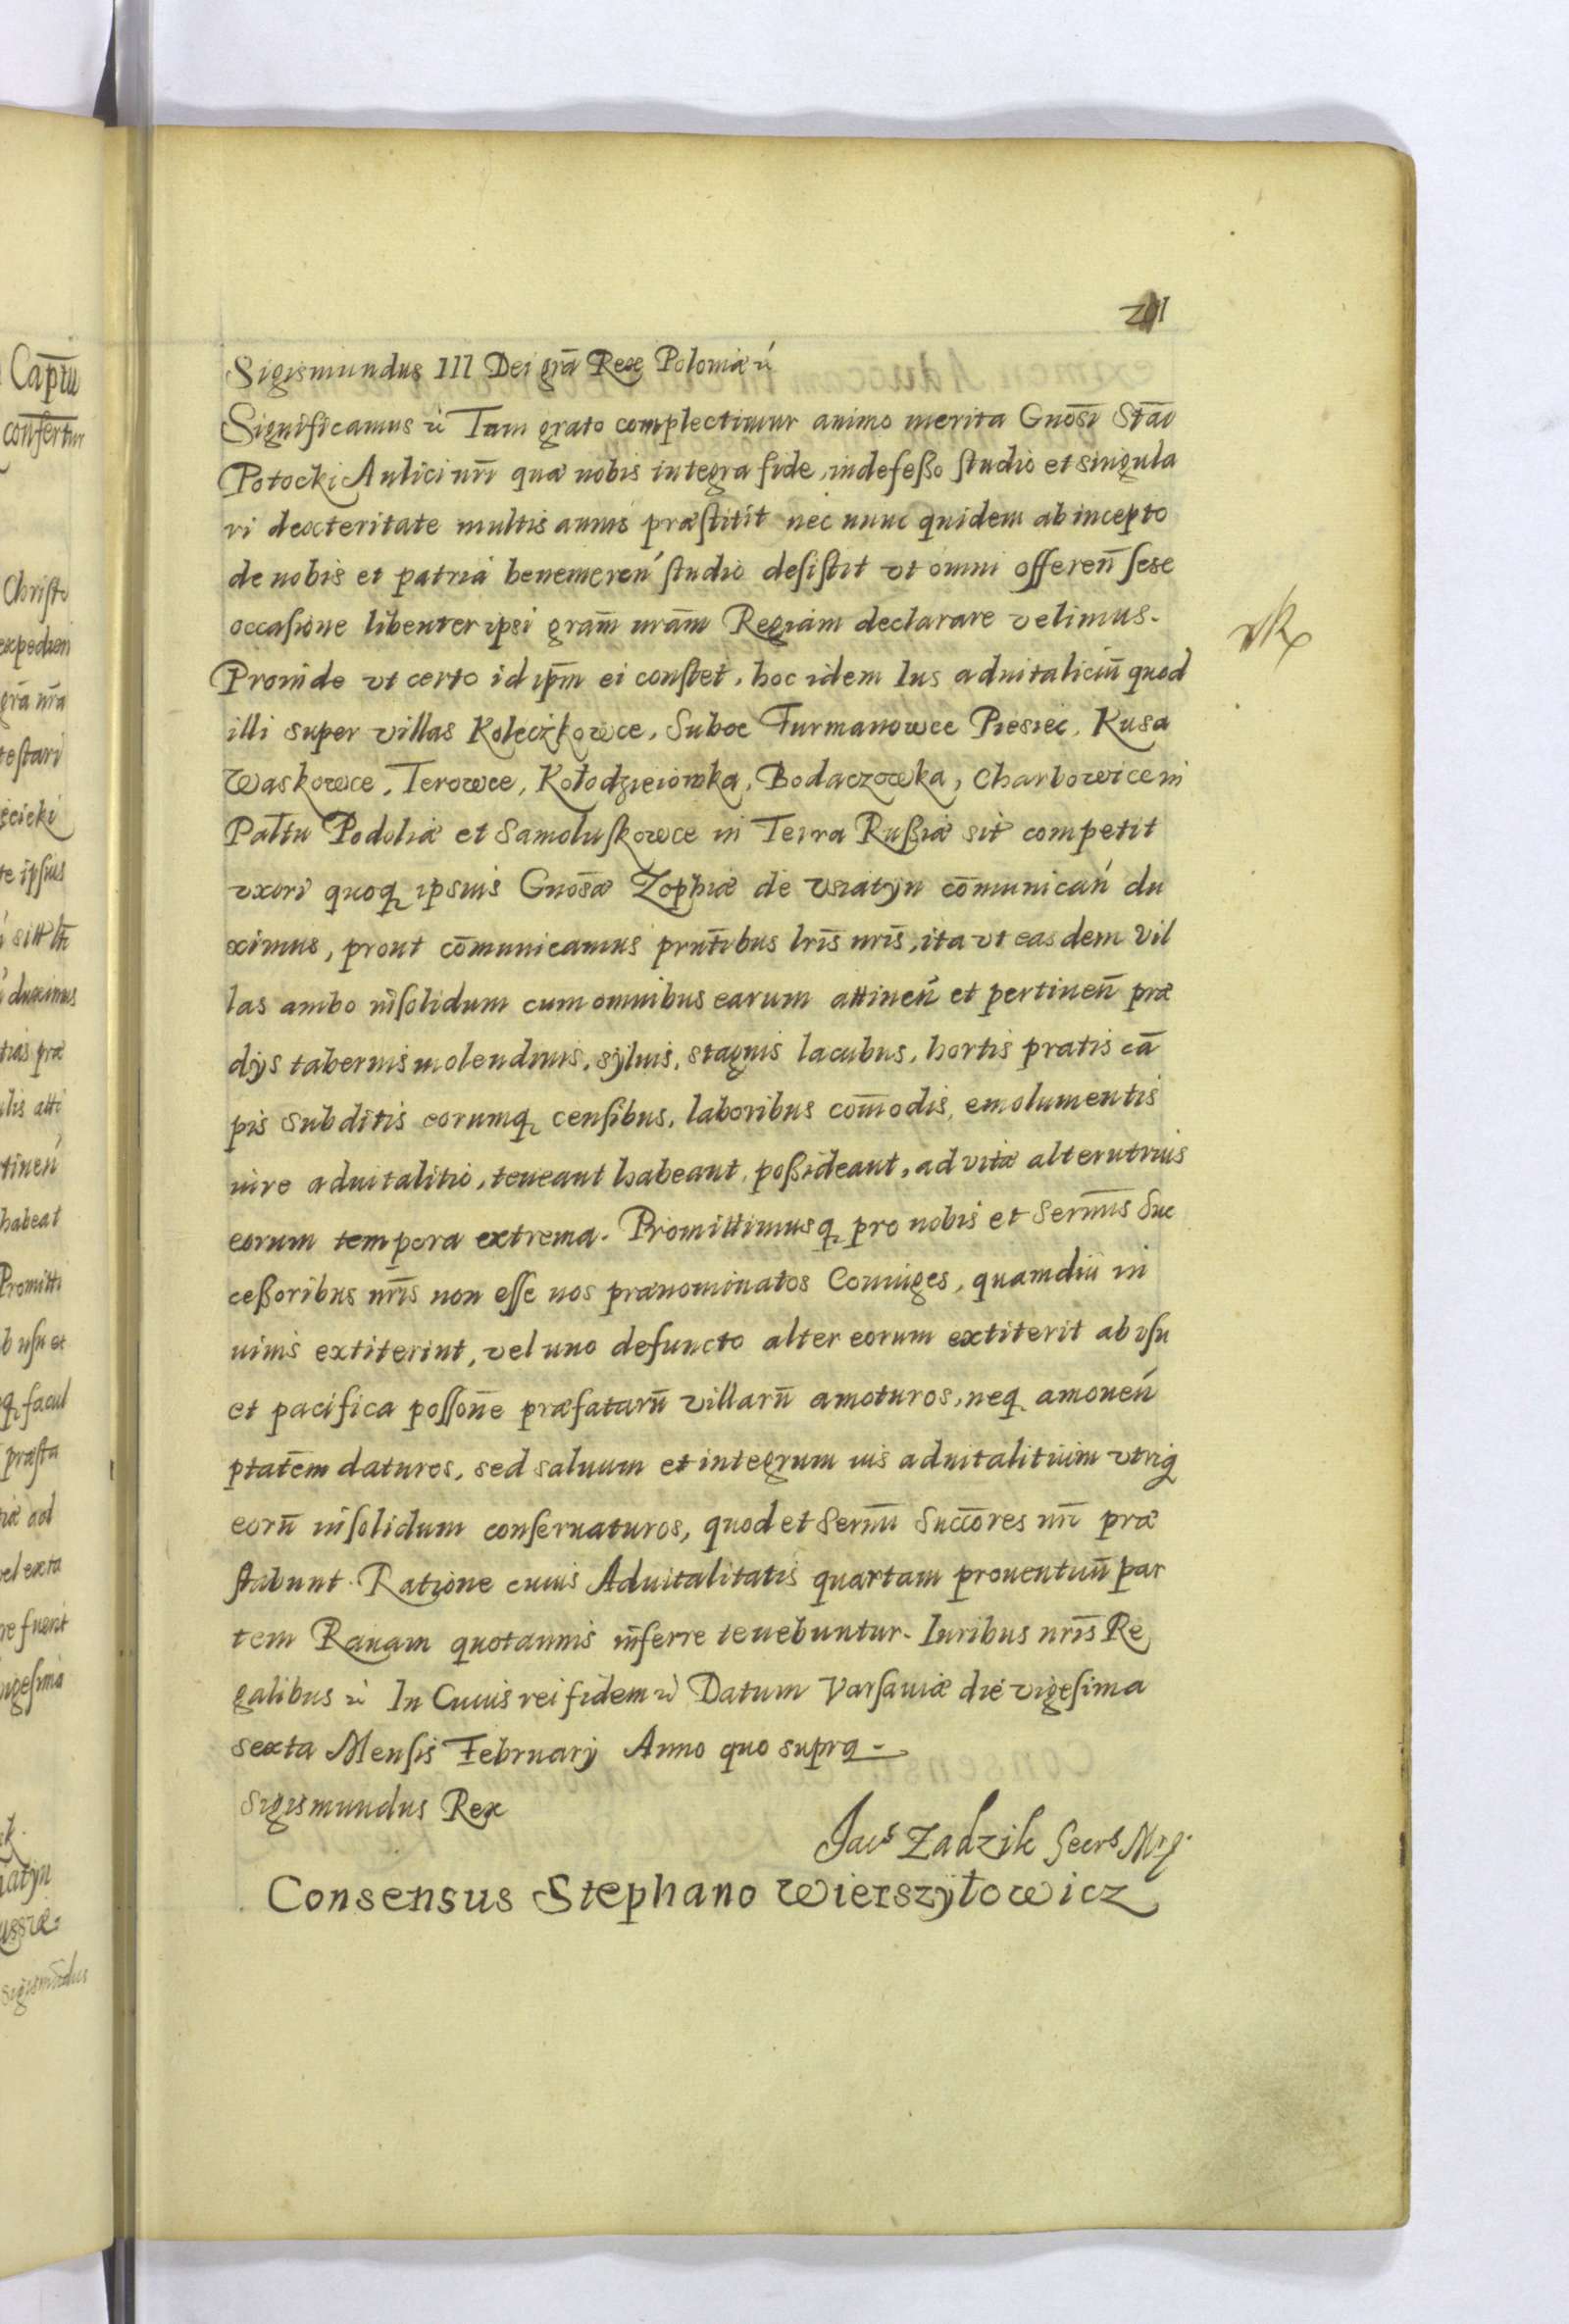 Sigismundus III Dei grã Rex Poloniæ
Significamus Tam grato complectimur animo merita Gnosi Stãi
Potocki Aulici nri quæ nobis integra fide, indefeßo studio et singula
ri dexteritate multis annis præstitit nec nunc quidem ab incepto
de nobis et patria benemeren studio desistit vt omni offeren sese
occasione libenter ipsi gram nram Regiam declarare velimus.
Proinde vt certo id ipm ei constet, hoc idem Ius aduitaliciũ quod
illi super villas Koleczkowce, Suboc Furmanowce Piesiec, Kusa
Waskowce, Terowce, Kołodzieiowka, Bodaczowka, Charbowice in
Paltu Podoliæ et Samoluskowce in Terra Rußiæ sit competit
vxori quoq ipsius Gnosæ Zophiæ de Vsiatyn cõmunican du
ximus, prout cõmunicamus prntibus lris nris, ita vt easdem Vil
las ambo insolidum cum omnibus earum attinen et pertinen præ
dys tabernis molendinis, syluis, stagnis lacubus, hortis pratis cã
pis subditis eorumq censibus, laboribus com̃odis, emolumentis
iure aduitalitio, teneant habeant, poßideant, ad vitæ alterutrius
eorum tempora extrema. Promittimusq pro nobis et Sermis Suc
ceßoribus nris non esse nos prænominatos Coniuges, quamdiu in
uiuis extiterint, vel uno defuncto alter eorum extiterit ab vsu
et pacifica possone præfatarũ villarũ amoturos, neq amouen
ptatem daturos, sed saluum et integrum ius aduitalitium vtriq
eorũ insolidum conseruaturos, quod et Sermi Succores nri præ
stabunt. Ratione cuius Aduitalitatis quartam prouentuũ par
tem Rauam quotannis inferre tenebuntur. Iuribus nris Re
galibus In Cuius rei fidem Datum Varsauiæ die vigesima
sexta Mensis February Anno quo supra
Sigismundus Rex
Jacs Zadzik Secrs
Consensus Stephano Wierszyłowicz